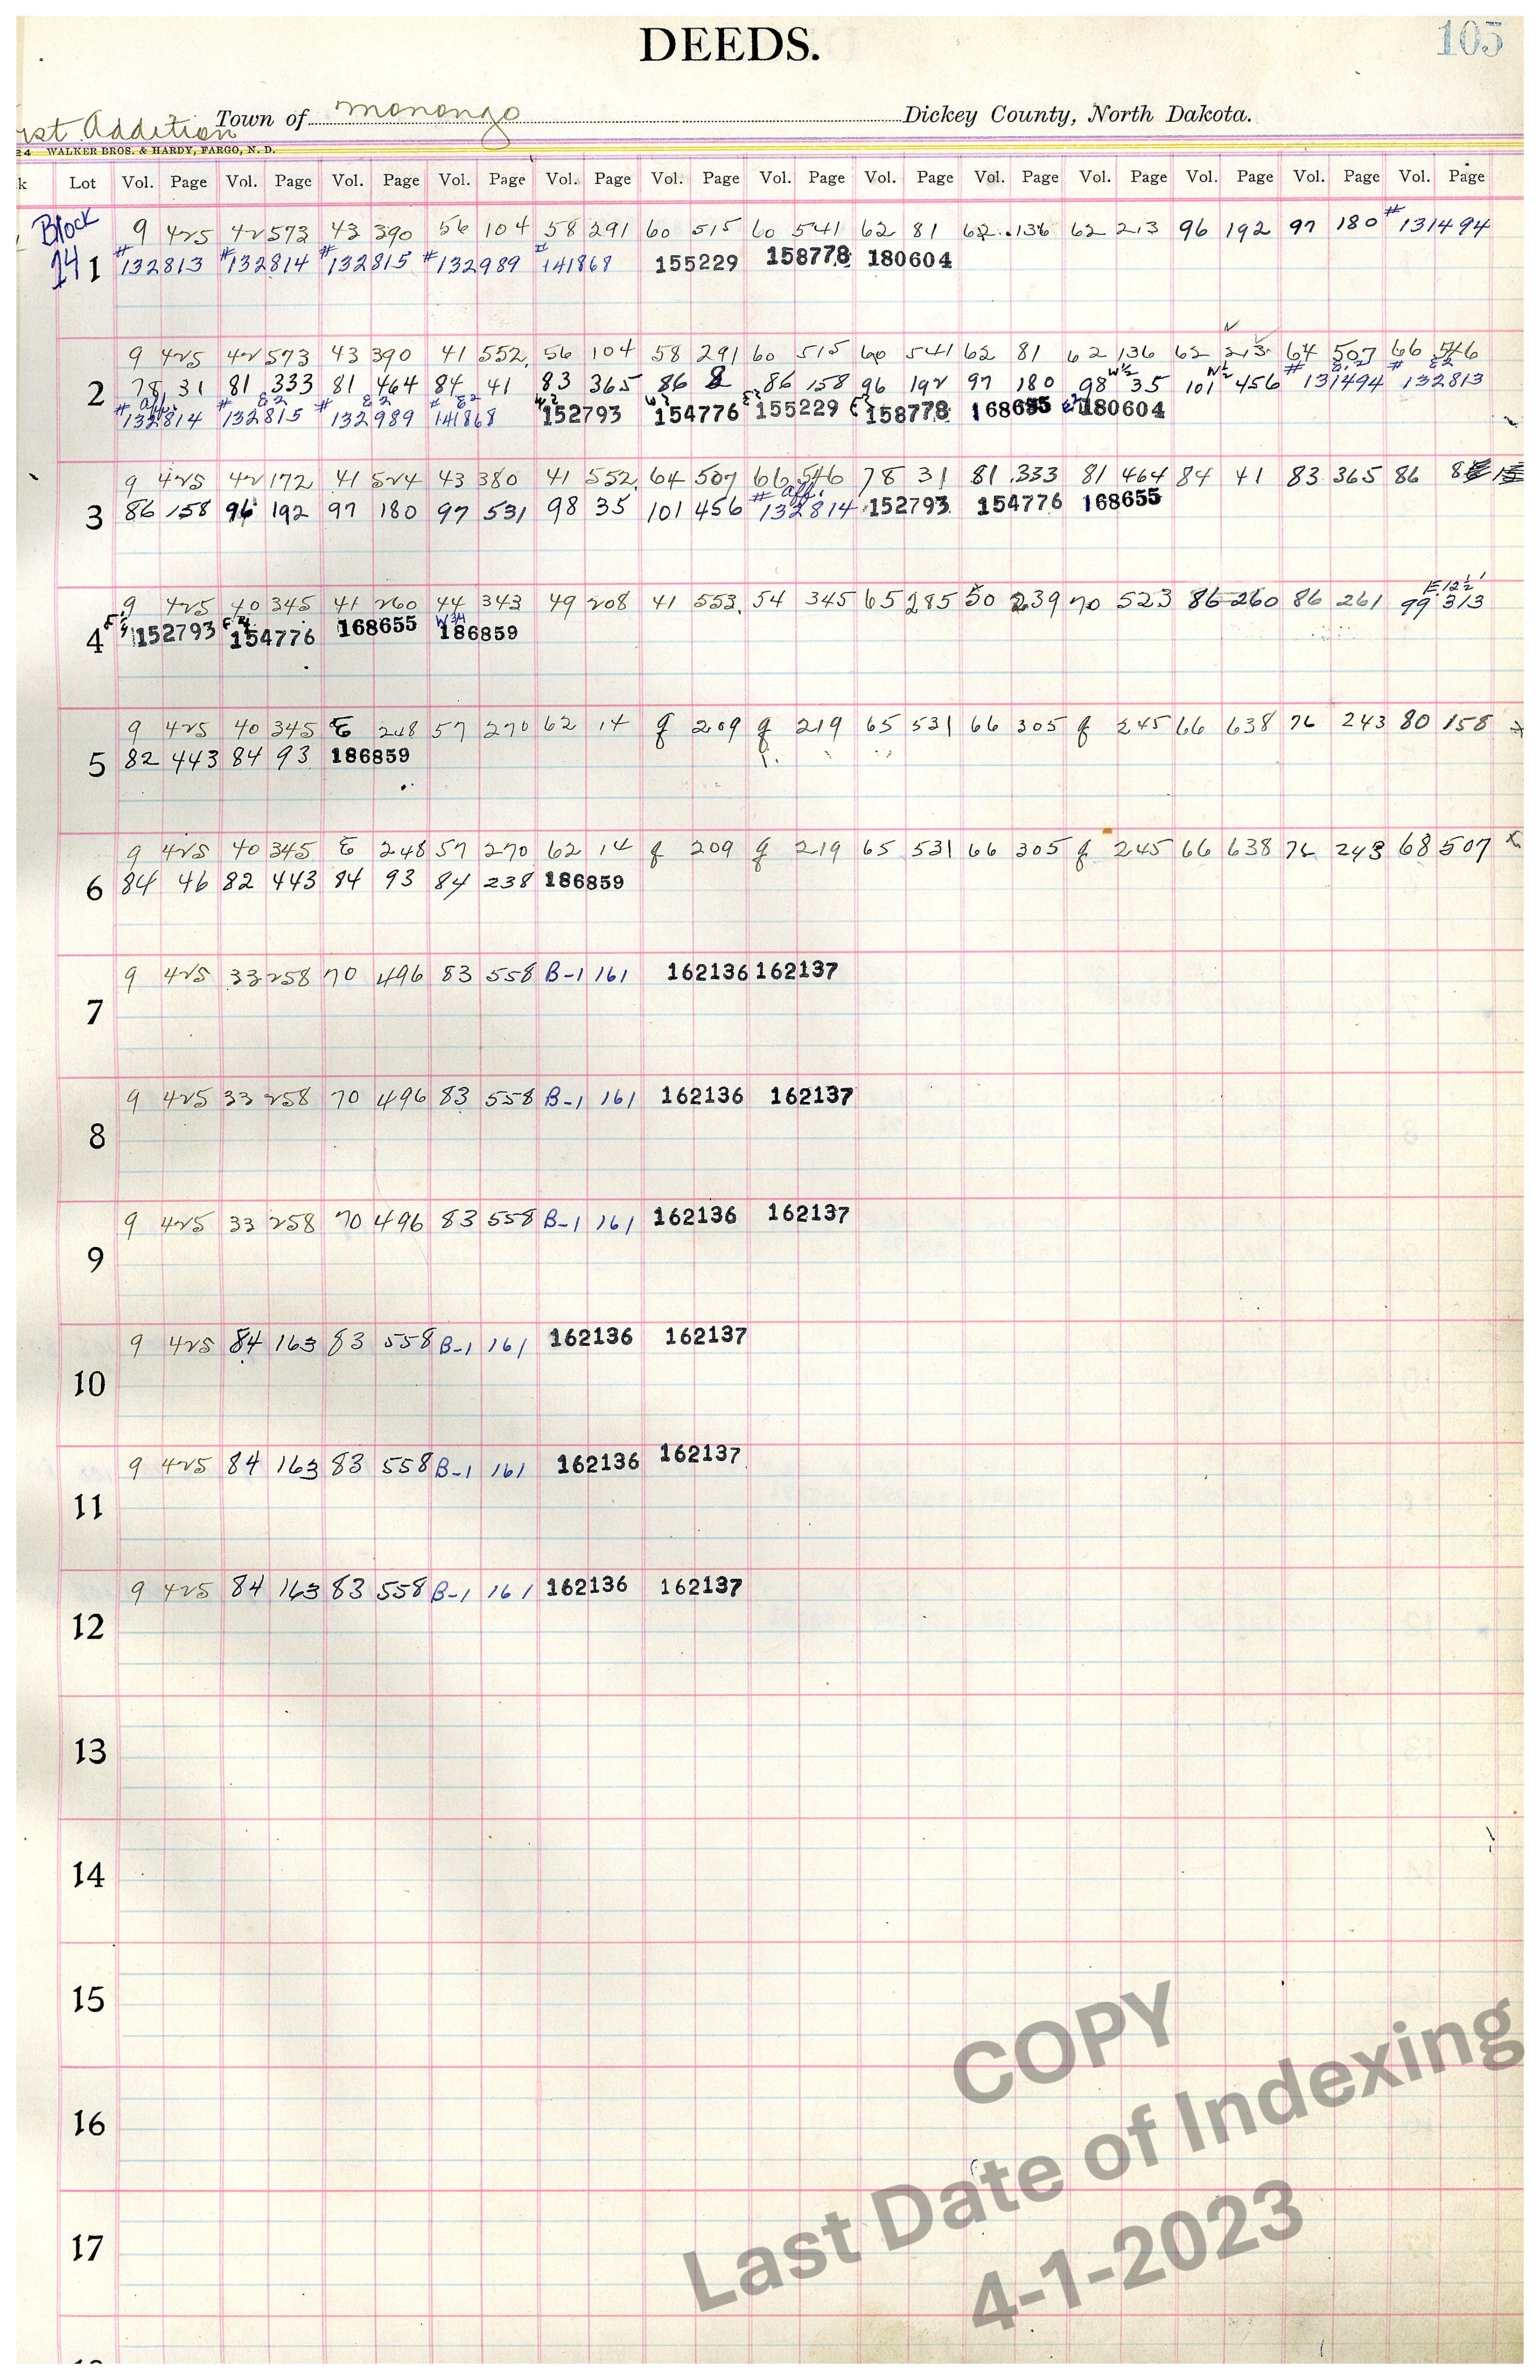 DEEDS.
105
rst Addition Town of monongo Dickey County, North Dakota.
24 WALKER BROS. & HARDY, FARGO, N. D.
k Lot Vol. Page Vol. Page Vol. Page Vol. Page Vol. Page Vol. Page Vol. Page Vol. Page Vol. Page Vol. Page Vol. Page Vol. Page Vol. Page
Block 9 425 42 573 43 390 56 104 58 291 60 515 60 541 62 81 62 136 62 213 96 192 97 180 #131494
14 1 #132813 #132814 #132815 #132989 #141868 155229 158778 180604
9 425 42 573 43 390 41 552 56 104 58 291 60 515 60 541 62 81 62 136 62 213 64 507 66 546
2 78 31 81 333 81 464 84 41 83 365 86 8 86 158 96 192 97 180 98 W½ 35 101 W½ 456 #131494 E.2 #132813 E2
#132814 aff. #132815 E2 #132989 E2 #141868 E2 W2 152793 154776 155229 158778 168655 180604
9 425 42 172 41 524 43 380 41 552 64 507 66 546 78 31 81 333 81 464 84 41 83 365 86 8
3 86 158 96 192 97 180 97 531 98 35 101 456 #132814 aff. 152793 154776 168655
9 425 40 345 41 260 44 343 49 208 41 553 54 345 65 285 50 239 70 523 86 260 86 261 99 313 E 12½
4 152793 154776 168655 W3/4 186859
9 425 40 345 E 248 57 270 62 14 g 209 g 219 65 531 66 305 g 245 66 638 76 243 80 158
5 82 443 84 93 186859
9 425 40 345 E 248 57 270 62 14 g 209 g 219 65 531 66 305 g 245 66 638 76 243 68 507 x
6 84 46 82 443 84 93 84 238 186859
9 425 33 258 70 496 83 558 B-1 161 162136 162137
7
9 425 33 258 70 496 83 558 B-1 161 162136 162137
8
9 425 33 258 70 496 83 558 B-1 161 162136 162137
9
9 425 84 163 83 558 B-1 161 162136 162137
10
9 425 84 163 83 558 B-1 161 162136 162137
11
9 425 84 163 83 558 B-1 161 162136 162137
12
13
14
15
16
17
COPY
Last Date of Indexing
4-1-2023